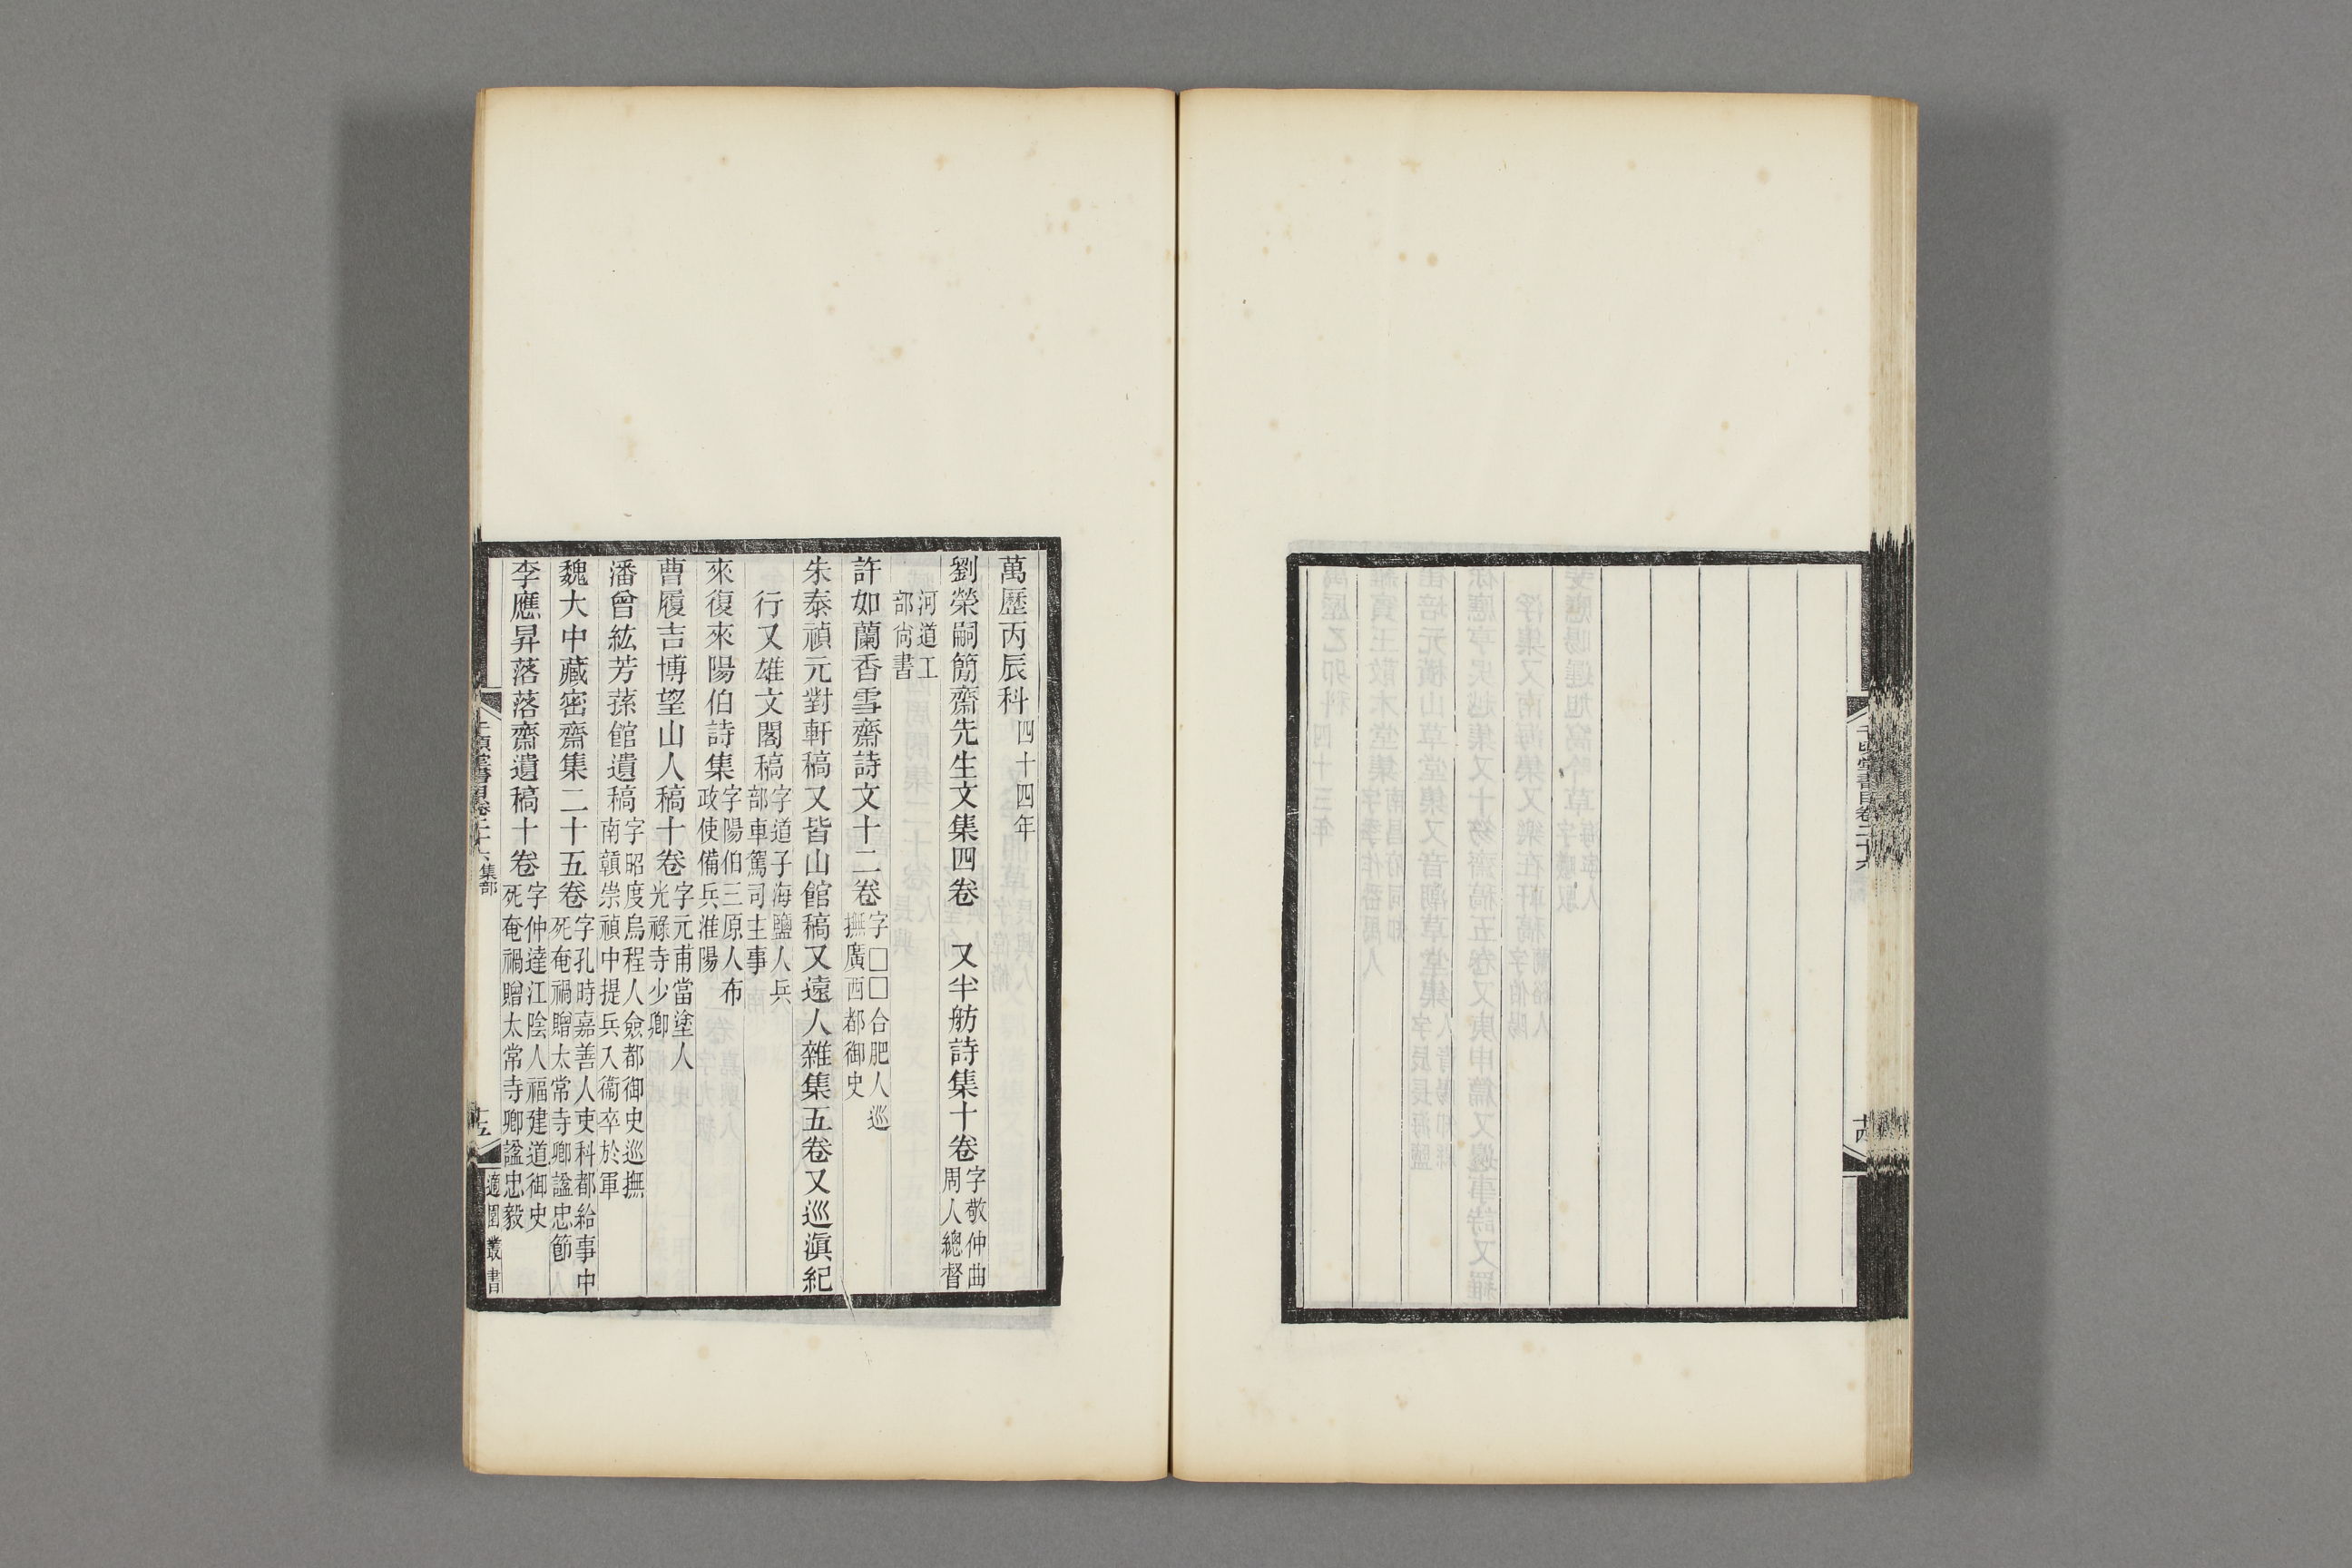 千頃堂書目卷二十六
十四
萬歷丙辰科四十四年
劉榮嗣簡齋先生文集四卷　又半舫詩集十卷字敬仲曲周人總督
河道工部尚書
許如蘭香雪齋詩文十二卷字□□合肥人巡撫廣西都御史
朱泰禎元對軒稿又皆山館稿又遠人雜集五卷又巡滇紀
行又雄文閣稿字道子海鹽人兵部車駕司主事
來復來陽伯詩集字陽伯三原人布政使備兵淮陽
曹履吉博望山人稿十卷字元甫當塗人光祿寺少卿
潘曾紘芳蓀館遺稿字昭度烏程人僉都御史巡撫南贛崇禎中提兵入衞卒於軍
魏大中藏密齋集二十五卷字孔時嘉善人吏科都給事中死奄禍贈太常寺卿諡忠節
李應昇落落齋遺稿十卷字仲達江陰人福建道御史死奄禍贈太常寺卿諡忠毅
千頃堂書目卷二十六集部
十五
適園叢書